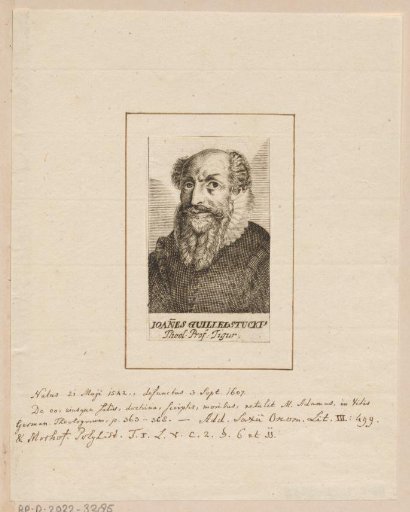 IOAÑES GUILIELSTUCKIꝰ
Theol. Prof. Tigur.
Natus 21 Maji 1542., defunctus 3 Sept. 1607.
De eo, ejusque fatis, doctrina, scriptis, moribus, retulit M. Adamus, in Vitis
German. Theologorum, p. 363-368. — Add. Saxii Onom. Lit. III: 499.
& Morhof. Polyhist. T. I. L. V. C. 2. §. 6 et
RP-P-2022-32/95